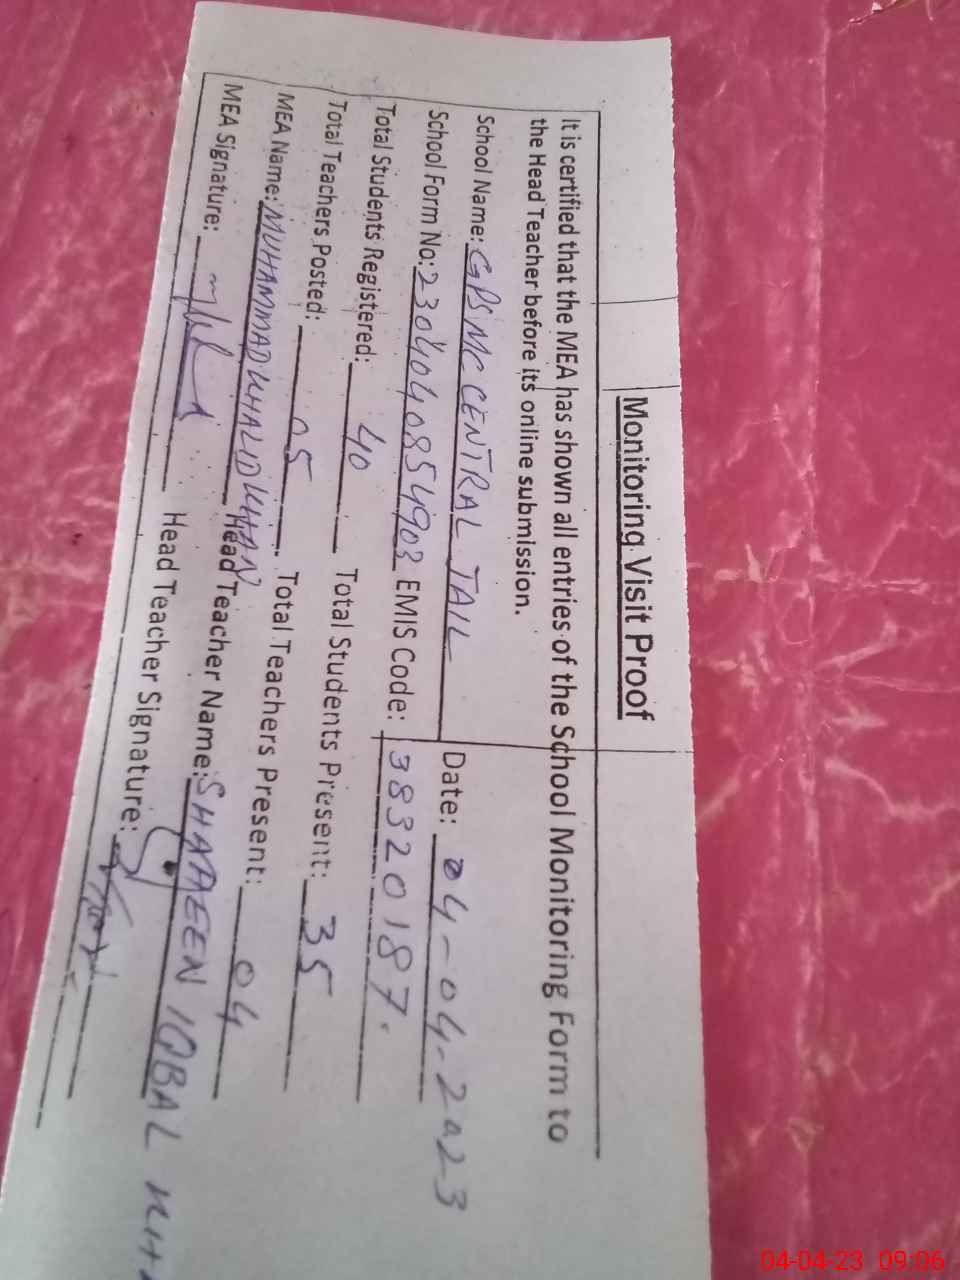 Monitoring Visit Proof
It is certified that the MEA has shown all entries of the School Monitoring Form to
the Head Teacher before its online submission.
School Name: GPS MC CENTRAL TAIL Date: 04-04-2023
School Form No: 23040408554903 EMIS Code: 38320187.
Total Students Registered: 40 Total Students Present: 35
Total Teachers Posted: 05 Total Teachers Present: 04
MEA Name: MUHAMMAD KHALID KHAN Head Teacher Name: SHAHEEN IQBAL
MEA Signature: Head Teacher Signature:
04-04-23 09:06